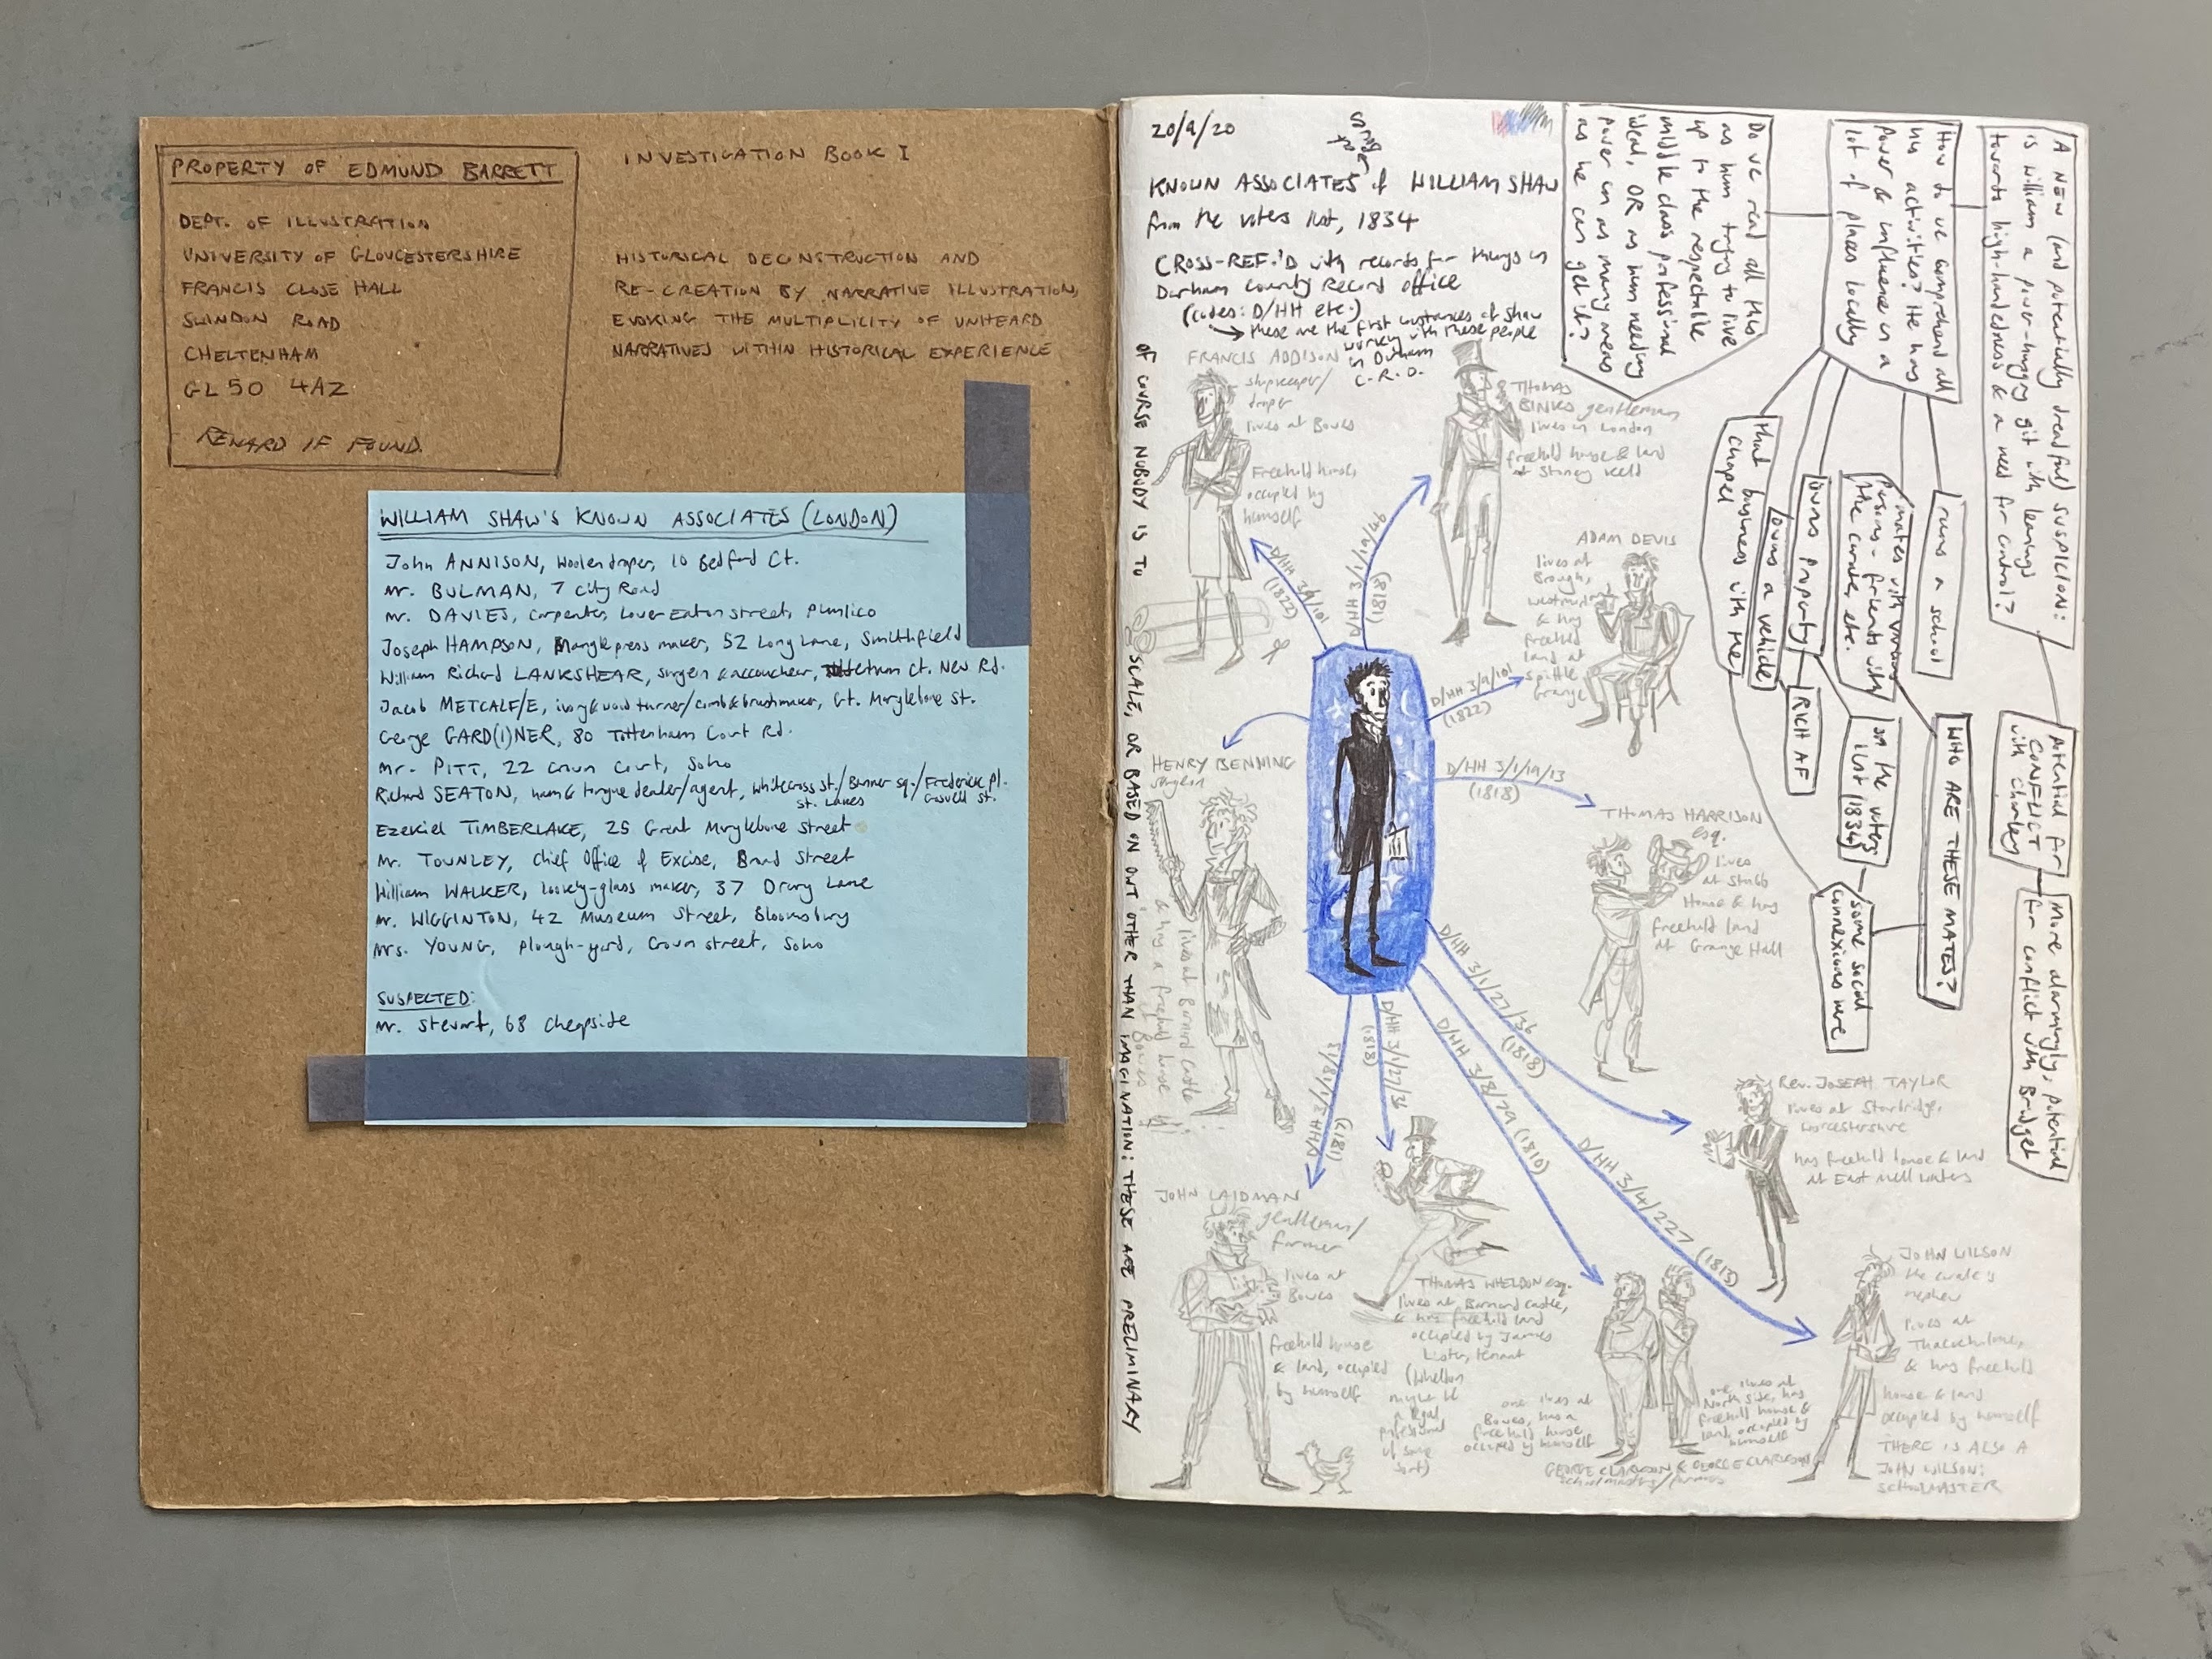 PROPERTY OF EDMUND BARRETT
DEPT. OF ILLUSTRATION
UNIVERSITY OF GLOUCESTERSHIRE
FRANCIS CLOSE HALL
SWINDON ROAD
CHELTENHAM
GL50 4AZ
REWARD IF FOUND.
INVESTIGATION BOOK I
HISTORICAL DECONSTRUCTION AND
RE-CREATION BY NARRATIVE ILLUSTRATION,
EVOKING THE MULTIPLICITY OF UNHEARD
NARRATIVES WITHIN HISTORICAL EXPERIENCE
WILLIAM SHAW'S KNOWN ASSOCIATES (LONDON)
John ANNISON, Woolendraper, 10 Bedford Ct.
Mr. BULMAN, 7 City Road
Mr. DAVIES, carpenter, Lower Eaton Street, Pimlico
Joseph HAMPSON, Mangle press maker, 52 Long Lane, Smithfield
William Richard LANKSHEAR, surgeon & accoucheur, Ct. New Rd.
Jacob METCALF/E, ivory & wood turner/comb & brushmaker, Gt. Marylebone St.
George GARD(I)NER, 80 Tottenham Court Rd.
Mr. PITT, 22 Crown Court, Soho
Richard SEATON, ham & tongue dealer/agent, Whitecross St./Banner Sq./Frederick Pl.
St. Lukes Goswell St.
Ezekiel TIMBERLAKE, 25 Great Marylebone Street
Mr. TOWNLEY, Chief Office of Excise, Broad Street
William WALKER, looking-glass maker, 37 Drury Lane
Mr. WIGGINTON, 42 Museum Street, Bloomsbury
Mrs. YOUNG, Plough-yard, Crown Street, Soho
SUSPECTED:
Mr. Stewart, 68 Cheapside
20/9/20
KNOWN ASSOCIATES of WILLIAM SHAW
from the voters list, 1834
CROSS-REF.'D with records for things in
Durham County Record Office
(codes: D/HH etc.)
these are the first instances of Shaw
working with these people
in Durham
C.R.O.
A NEW (and potentially dreadful) SUSPICION:
is William a power-hungry git with leanings
towards high-handedness & a need for control?
How do we comprehend all
his activities? He has
power & influence in a
lot of places locally
Do we read all this
as him trying to live
up to the respectable
middle class professional
ideal, OR as him needing
power in as many areas
as he can get it?
runs a school
mates with various
persons - friends with
the curate, etc.
owns property
owns a vehicle
that business with the
chapel
RICH AF
on the voters
list (1834)
WHO ARE THESE MATES?
some social
connexions were
potential for
CONFLICT
with Charley
More alarmingly, potential
for conflict with Bridget
FRANCIS ADDISON
shopkeeper/
draper
lives at Bowes
Freehold house,
occupied by
himself
D/HH 3/9/101
(1822)
THOMAS
BINKS gentleman
lives in London
freehold house & land
at Stoney Keld
D/HH 3/1/19/46
(1818)
ADAM DEVIS
lives at
Brough,
& has
freehold
land at
Spittle
Grange
D/HH 3/9/101
(1822)
HENRY BENNING
surgeon
lives at Barnard Castle
& has a freehold house
Bowes
D/HH 3/1/19/13
(1818)
THOMAS HARRISON
esq.
lives
at Stubb
House & has
freehold land
at Grange Hall
D/HH 3/1/27/36
(1818)
Rev. JOSEPH TAYLOR
lives at Stourbridge,
Worcestershire
has freehold house & land
at East Mellwaters
D/HH 3/4/227 (1813)
JOHN WILSON
the curate's
nephew
lives at
& has freehold
house & land
occupied by himself
THERE IS ALSO A
JOHN WILSON:
SCHOOLMASTER
D/HH 3/8/29 (1810)
one lives at
Bowes, has a
freehold house
occupied by himself
one lives at
North Side, has
freehold house &
land, occupied by
himself
GEORGE CLARKSON & GEORGE CLARKSON
schoolmasters/farmers
D/HH 3/1/27/36
(1818)
THOMAS WHELDON esq.
lives at Barnard Castle,
& has freehold land
occupied by James
Lister, tenant
(Wheldon
might be
a legal
professional
of some
sort)
JOHN LAIDMAN
gentleman/
farmer
lives at
Bowes
freehold house
& land, occupied
by himself
OF COURSE NOBODY IS TO SCALE, OR BASED ON OWT OTHER THAN IMAGINATION: THESE ARE PRELIMINARY